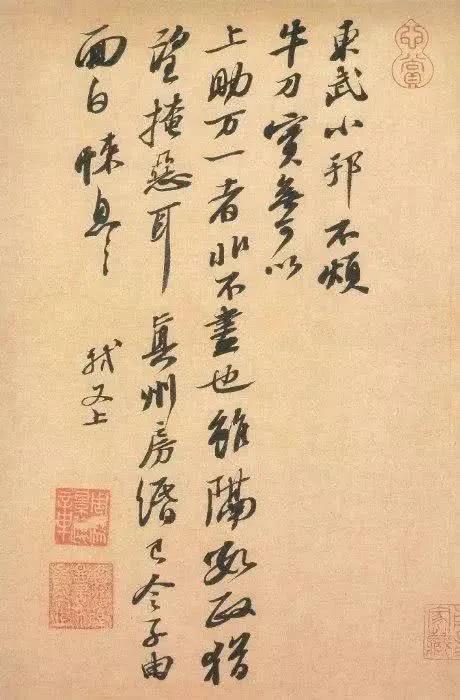 東武小邦不煩
牛刀實無可以
上助万一者非不盡也雖隔數政猶
望掩惡耳 真州房緡已令子由
面白悚息〻
軾又上